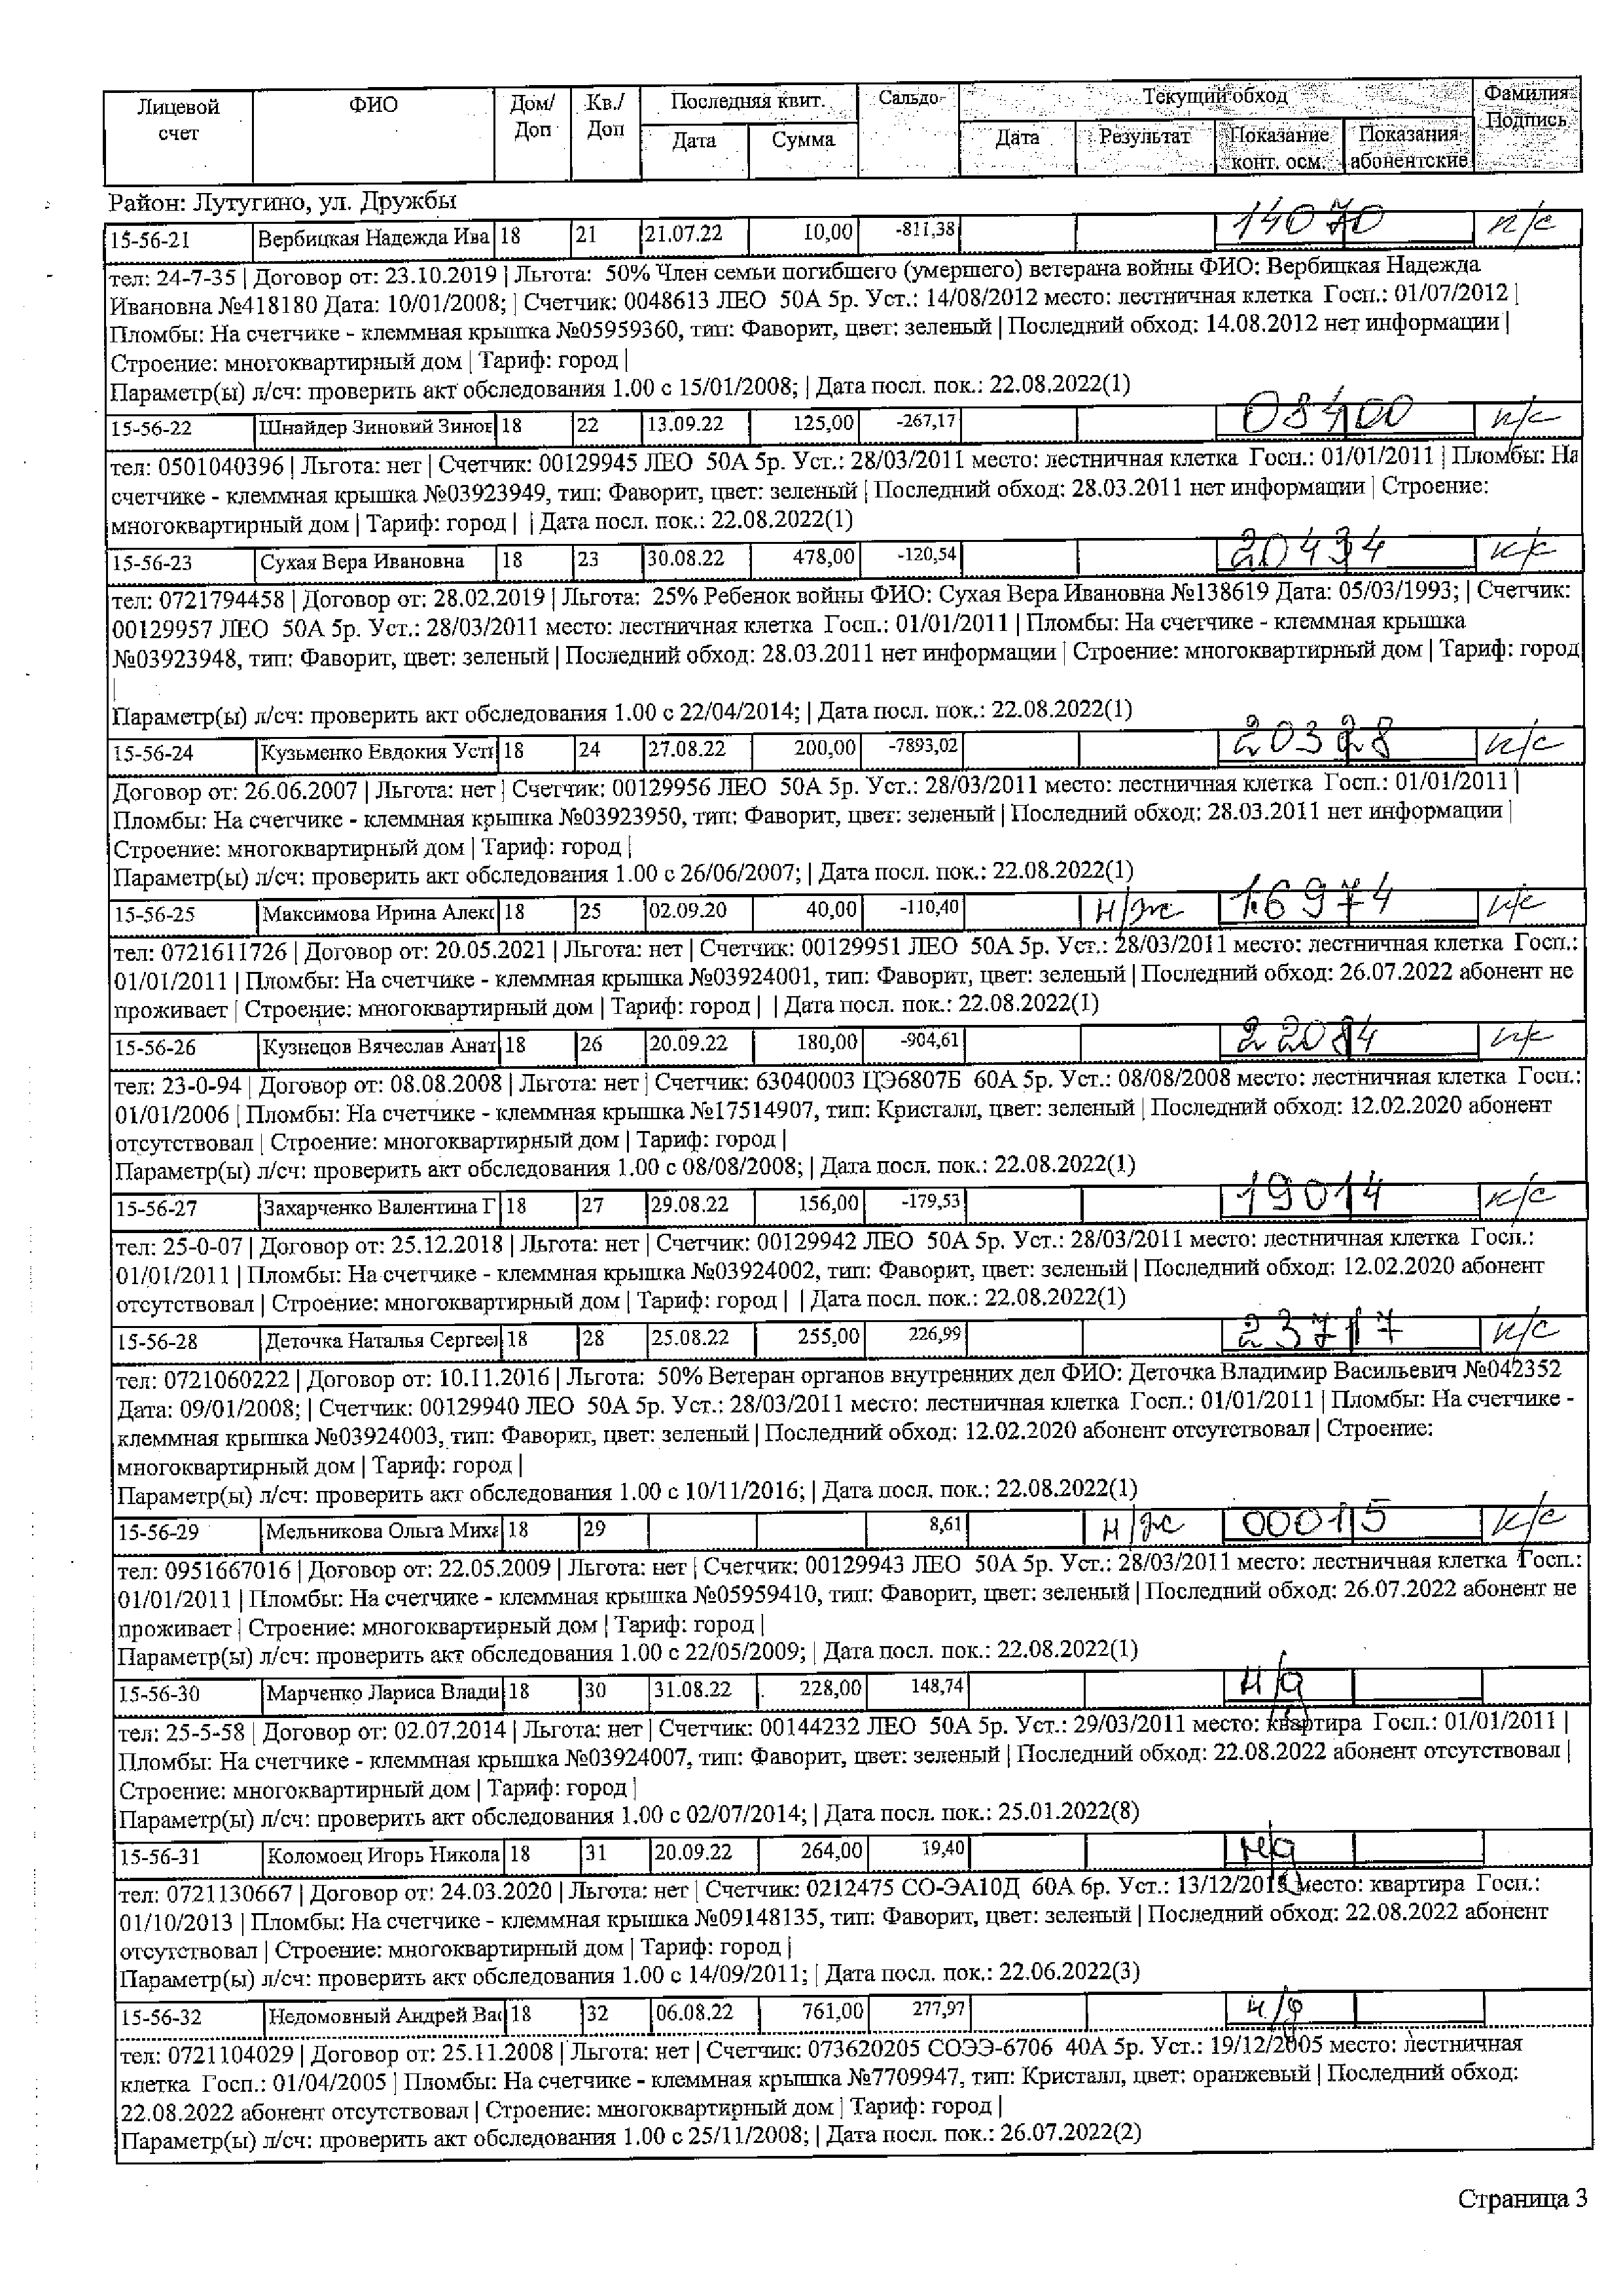 Лицевой счет | ФИО | Дом/ Доп | Кв./ Доп | Последняя квит. | Сальдо | Текущий обход | Фамилия Подпись
Дата | Сумма | Дата | Результат | Показание конт. осм. | Показания абонентские
Район: Лутугино, ул. Дружбы
15-56-21 | Вербицкая Надежда Ива | 18 | 21 | 21.07.22 | 10,00 | -811,38 | 14070 | к/с
тел: 24-7-35 | Договор от: 23.10.2019 | Льгота: 50% Член семьи погибшего (умершего) ветерана войны ФИО: Вербицкая Надежда
Ивановна №418180 Дата: 10/01/2008; | Счетчик: 0048613 ЛЕО 50А 5р. Уст.: 14/08/2012 место: лестничная клетка Госп.: 01/07/2012 |
Пломбы: На счетчике - клеммная крышка №05959360, тип: Фаворит, цвет: зеленый | Последний обход: 14.08.2012 нет информации |
Строение: многоквартирный дом | Тариф: город |
Параметр(ы) л/сч: проверить акт обследования 1.00 с 15/01/2008; | Дата посл. пок.: 22.08.2022(1)
15-56-22 | Шнайдер Зиновий Зинов | 18 | 22 | 13.09.22 | 125,00 | -267,17 | 03400 | к/с
тел: 0501040396 | Льгота: нет | Счетчик: 00129945 ЛЕО 50А 5р. Уст.: 28/03/2011 место: лестничная клетка Госп.: 01/01/2011 | Пломбы: На
счетчике - клеммная крышка №03923949, тип: Фаворит, цвет: зеленый | Последний обход: 28.03.2011 нет информации | Строение:
многоквартирный дом | Тариф: город | | Дата посл. пок.: 22.08.2022(1)
15-56-23 | Сухая Вера Ивановна | 18 | 23 | 30.08.22 | 478,00 | -120,54 | 20434 | к/с
тел: 0721794458 | Договор от: 28.02.2019 | Льгота: 25% Ребенок войны ФИО: Сухая Вера Ивановна №138619 Дата: 05/03/1993; | Счетчик:
00129957 ЛЕО 50А 5р. Уст.: 28/03/2011 место: лестничная клетка Госп.: 01/01/2011 | Пломбы: На счетчике - клеммная крышка
№03923948, тип: Фаворит, цвет: зеленый | Последний обход: 28.03.2011 нет информации | Строение: многоквартирный дом | Тариф: город
|
Параметр(ы) л/сч: проверить акт обследования 1.00 с 22/04/2014; | Дата посл. пок.: 22.08.2022(1)
15-56-24 | Кузьменко Евдокия Усти | 18 | 24 | 27.08.22 | 200,00 | -7893,02 | 20328 | к/с
Договор от: 26.06.2007 | Льгота: нет | Счетчик: 00129956 ЛЕО 50А 5р. Уст.: 28/03/2011 место: лестничная клетка Госп.: 01/01/2011 |
Пломбы: На счетчике - клеммная крышка №03923950, тип: Фаворит, цвет: зеленый | Последний обход: 28.03.2011 нет информации |
Строение: многоквартирный дом | Тариф: город |
Параметр(ы) л/сч: проверить акт обследования 1.00 с 26/06/2007; | Дата посл. пок.: 22.08.2022(1)
15-56-25 | Максимова Ирина Алекс | 18 | 25 | 02.09.20 | 40,00 | -110,40 | н/ж | 16974 | к/с
тел: 0721611726 | Договор от: 20.05.2021 | Льгота: нет | Счетчик: 00129951 ЛЕО 50А 5р. Уст.: 28/03/2011 место: лестничная клетка Госп.:
01/01/2011 | Пломбы: На счетчике - клеммная крышка №03924001, тип: Фаворит, цвет: зеленый | Последний обход: 26.07.2022 абонент не
проживает | Строение: многоквартирный дом | Тариф: город | | Дата посл. пок.: 22.08.2022(1)
15-56-26 | Кузнецов Вячеслав Анат | 18 | 26 | 20.09.22 | 180,00 | -904,61 | к/с
тел: 23-0-94 | Договор от: 08.08.2008 | Льгота: нет | Счетчик: 63040003 ЦЭ6807Б 60А 5р. Уст.: 08/08/2008 место: лестничная клетка Госп.:
01/01/2006 | Пломбы: На счетчике - клеммная крышка №17514907, тип: Кристалл, цвет: зеленый | Последний обход: 12.02.2020 абонент
отсутствовал | Строение: многоквартирный дом | Тариф: город |
Параметр(ы) л/сч: проверить акт обследования 1.00 с 08/08/2008; | Дата посл. пок.: 22.08.2022(1)
15-56-27 | Захарченко Валентина Г | 18 | 27 | 29.08.22 | 156,00 | -179,53 | 19014 | к/с
тел: 25-0-07 | Договор от: 25.12.2018 | Льгота: нет | Счетчик: 00129942 ЛЕО 50А 5р. Уст.: 28/03/2011 место: лестничная клетка Госп.:
01/01/2011 | Пломбы: На счетчике - клеммная крышка №03924002, тип: Фаворит, цвет: зеленый | Последний обход: 12.02.2020 абонент
отсутствовал | Строение: многоквартирный дом | Тариф: город | | Дата посл. пок.: 22.08.2022(1)
15-56-28 | Деточка Наталья Сергеев | 18 | 28 | 25.08.22 | 255,00 | 226,99 | 23717 | к/с
тел: 0721060222 | Договор от: 10.11.2016 | Льгота: 50% Ветеран органов внутренних дел ФИО: Деточка Владимир Васильевич №042352
Дата: 09/01/2008; | Счетчик: 00129940 ЛЕО 50А 5р. Уст.: 28/03/2011 место: лестничная клетка Госп.: 01/01/2011 | Пломбы: На счетчике -
клеммная крышка №03924003, тип: Фаворит, цвет: зеленый | Последний обход: 12.02.2020 абонент отсутствовал | Строение:
многоквартирный дом | Тариф: город |
Параметр(ы) л/сч: проверить акт обследования 1.00 с 10/11/2016; | Дата посл. пок.: 22.08.2022(1)
15-56-29 | Мельникова Ольга Миха | 18 | 29 | 8,61 | н/ж | 00015 | к/с
тел: 0951667016 | Договор от: 22.05.2009 | Льгота: нет | Счетчик: 00129943 ЛЕО 50А 5р. Уст.: 28/03/2011 место: лестничная клетка Госп.:
01/01/2011 | Пломбы: На счетчике - клеммная крышка №05959410, тип: Фаворит, цвет: зеленый | Последний обход: 26.07.2022 абонент не
проживает | Строение: многоквартирный дом | Тариф: город |
Параметр(ы) л/сч: проверить акт обследования 1.00 с 22/05/2009; | Дата посл. пок.: 22.08.2022(1)
15-56-30 | Марченко Лариса Влади | 18 | 30 | 31.08.22 | 228,00 | 148,74 | н/д
тел: 25-5-58 | Договор от: 02.07.2014 | Льгота: нет | Счетчик: 00144232 ЛЕО 50А 5р. Уст.: 29/03/2011 место: квартира Госп.: 01/01/2011 |
Пломбы: На счетчике - клеммная крышка №03924007, тип: Фаворит, цвет: зеленый | Последний обход: 22.08.2022 абонент отсутствовал |
Строение: многоквартирный дом | Тариф: город |
Параметр(ы) л/сч: проверить акт обследования 1.00 с 02/07/2014; | Дата посл. пок.: 25.01.2022(8)
15-56-31 | Коломоец Игорь Никола | 18 | 31 | 20.09.22 | 264,00 | 19,40 | н/д
тел: 0721130667 | Договор от: 24.03.2020 | Льгота: нет | Счетчик: 0212475 СО-ЭА10Д 60А 6р. Уст.: место: квартира Госп.:
01/10/2013 | Пломбы: На счетчике - клеммная крышка №09148135, тип: Фаворит, цвет: зеленый | Последний обход: 22.08.2022 абонент
отсутствовал | Строение: многоквартирный дом | Тариф: город |
Параметр(ы) л/сч: проверить акт обследования 1.00 с 14/09/2011; | Дата посл. пок.: 22.06.2022(3)
15-56-32 | Недомовный Андрей Вас | 18 | 32 | 06.08.22 | 761,00 | 277,97 | н/д
тел: 0721104029 | Договор от: 25.11.2008 | Льгота: нет | Счетчик: 073620205 СОЭЭ-6706 40А 5р. Уст.: 19/12/2005 место: лестничная
клетка Госп.: 01/04/2005 | Пломбы: На счетчике - клеммная крышка №7709947, тип: Кристалл, цвет: оранжевый | Последний обход:
22.08.2022 абонент отсутствовал | Строение: многоквартирный дом | Тариф: город |
Параметр(ы) л/сч: проверить акт обследования 1.00 с 25/11/2008; | Дата посл. пок.: 26.07.2022(2)
Страница 3